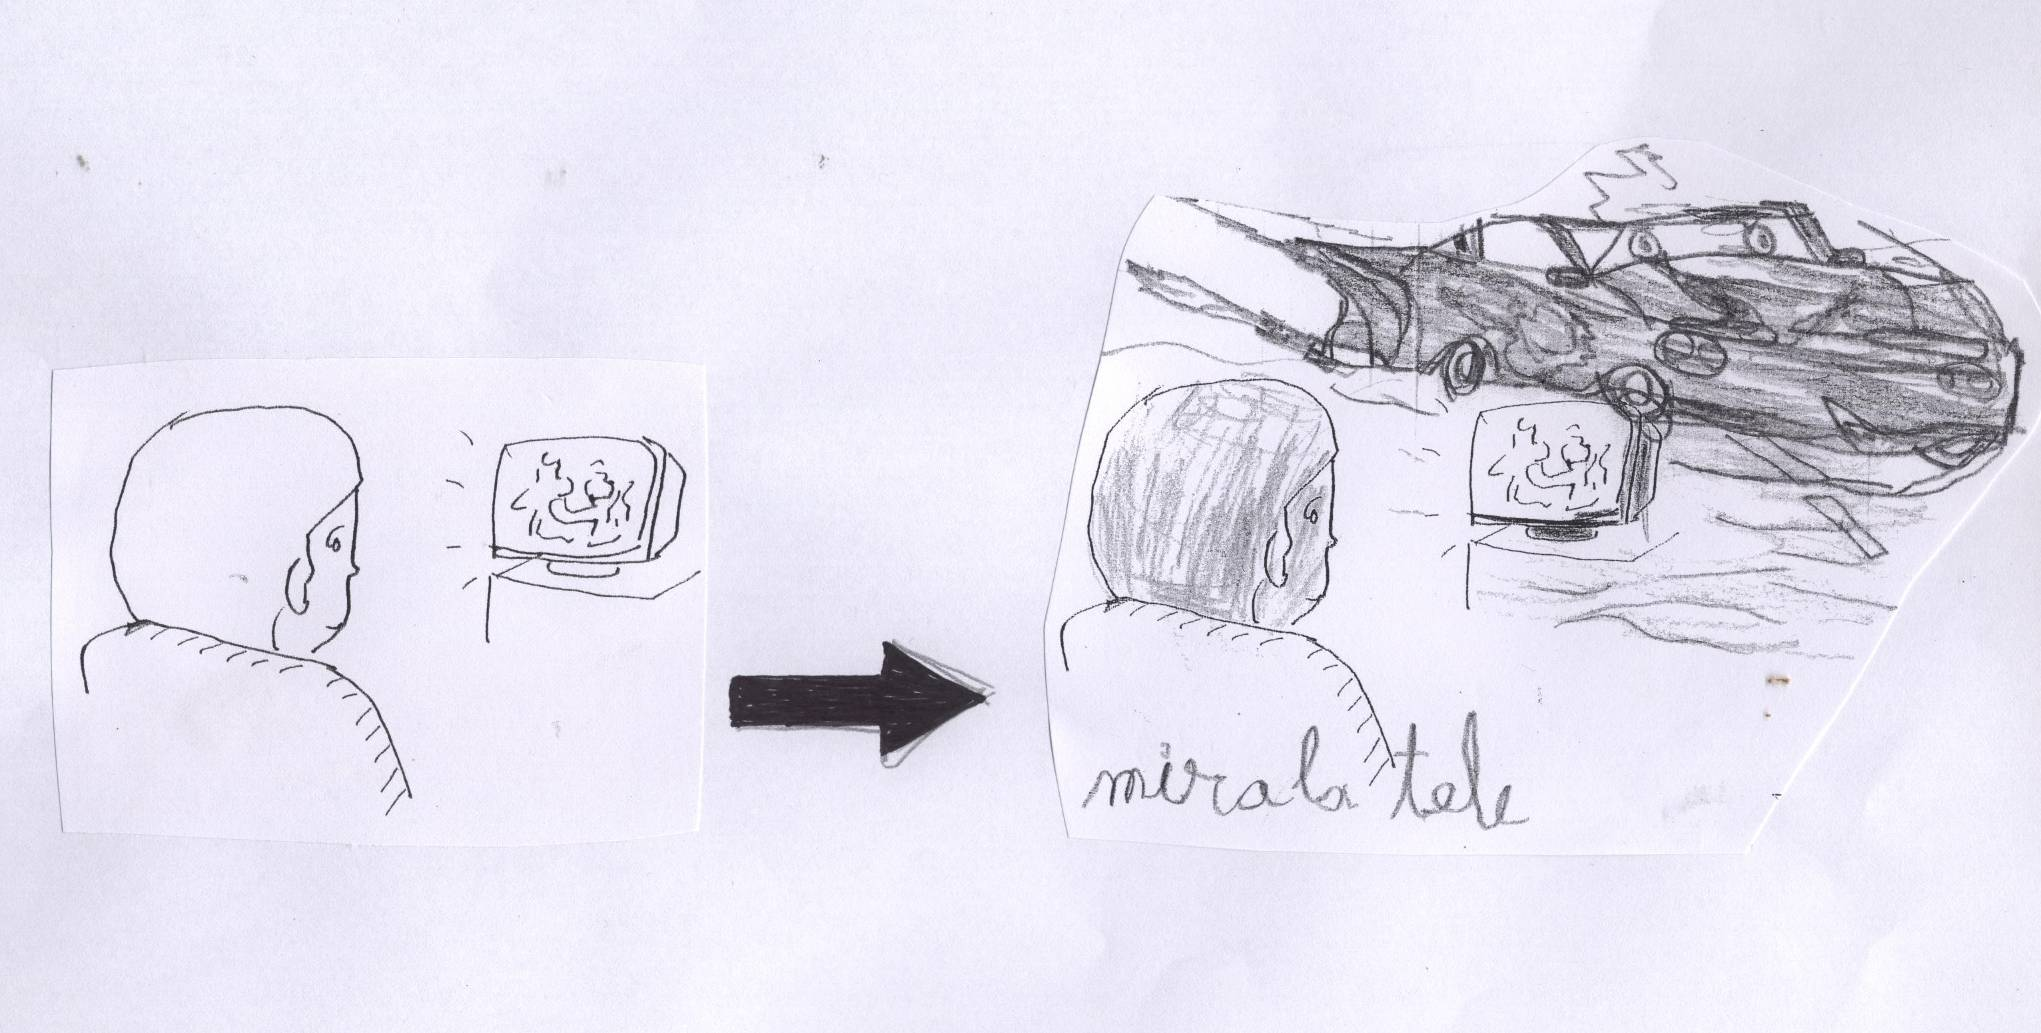 mira la tele